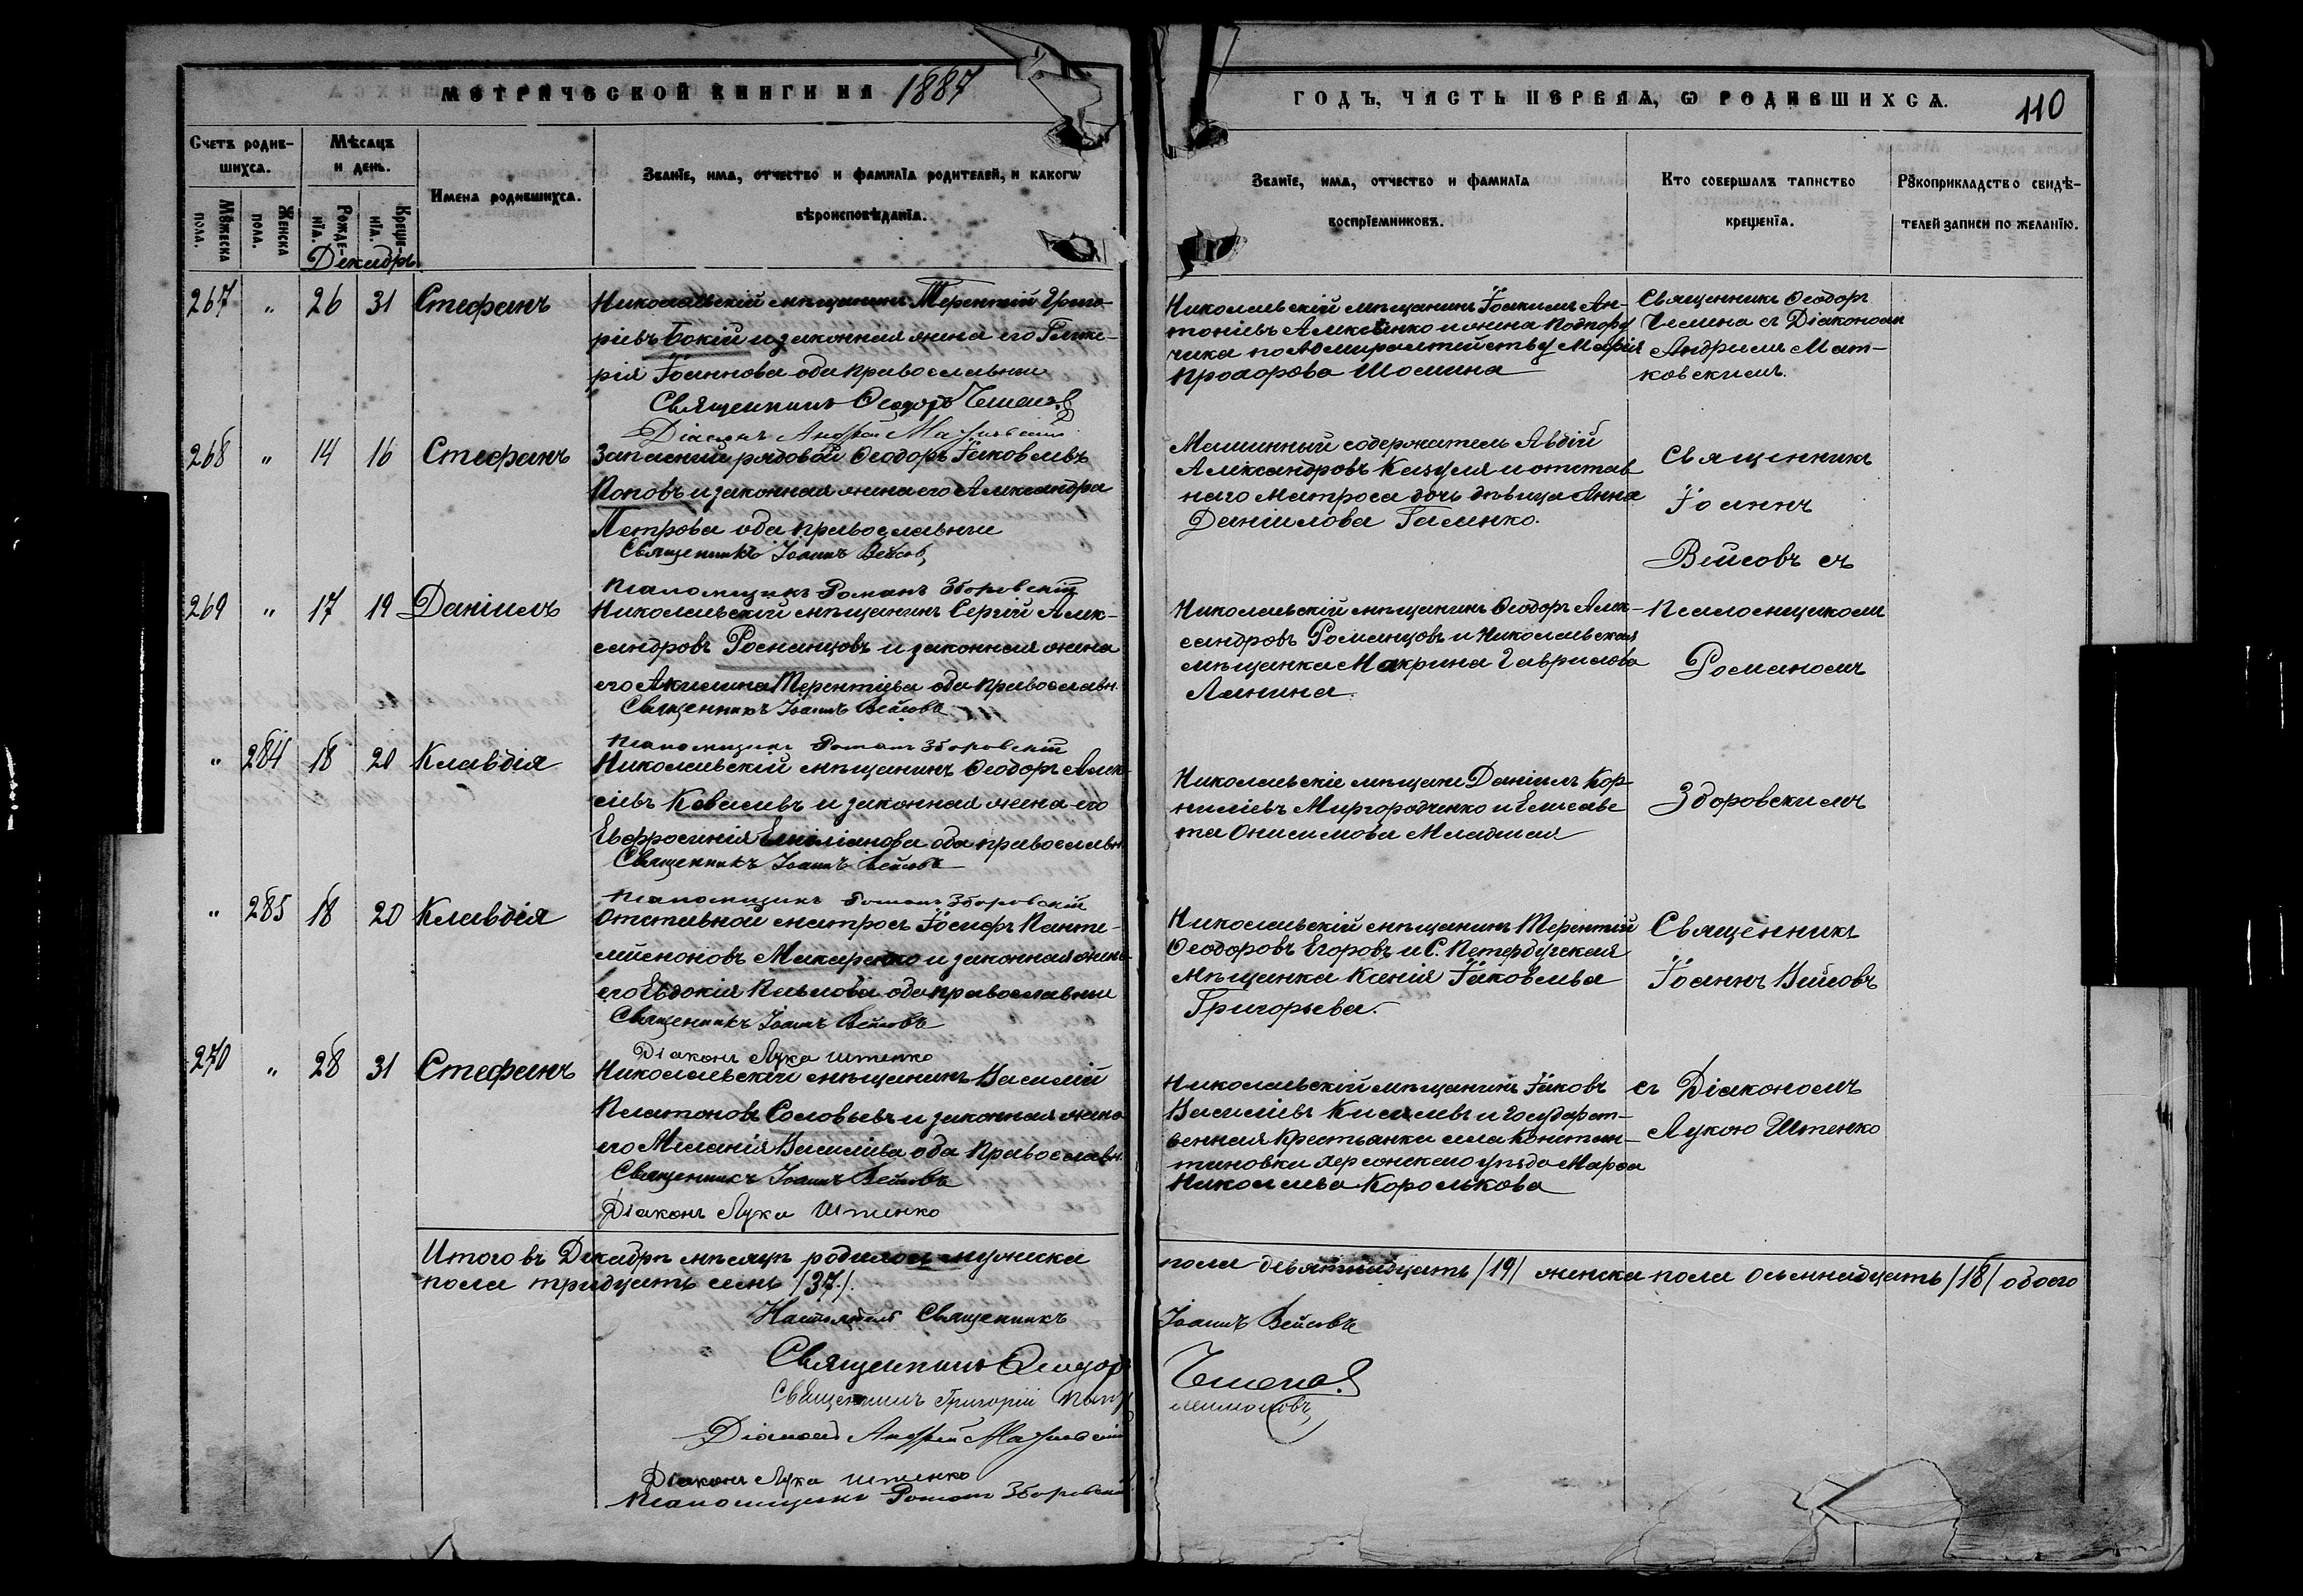 МЕТРИЧЕСКОЙ КНИГИ НА 1887
ГОДЪ, ЧАСТЬ ПЕРВАЯ, Ѡ РОДИВШИХСѦ.
110
Счетъ родив-
шихсѧ.
Мѣсѧцъ
и день.
Имена родившихсѧ.
Званїе, имѧ, отчество и фамилїѧ родителей, и какогѡ
вѣроисповѣданїѧ.
Мꙋжеска
пола.
Женска
пола.
Рожде-
нїѧ.
Креще-
нїѧ.
Званїе, имѧ, отчество и фамилїѧ
воспрїемниковъ.
Кто совершалъ таинство
крещенїѧ.
Рꙋкоприкладство свидѣ-
телей записи по желанїю.
Декабрь
267 " 26 31 Стефанъ
Николаевскій мѣщанинъ Терентій Григо-
ріевъ Бокій и законная жена его Глике-
рія Іоаннова оба православные
Священникъ Ѳеодоръ
Діаконъ Андрей
Николаевскій мѣщанинъ Іоакимъ Ан-
тоніевъ Алексѣенко и жена подпору
чика по Адмиралтейству Марія
Прохорова Шомина
Священникъ Ѳеодоръ
съ Діакономъ
Андреемъ Мат-
ковскимъ.
268 " 14 16 Стефанъ
Запасный рядовой Ѳеодоръ Іаковлевъ
Поповъ и законная жена его Александра
Петрова оба православные
Священникъ Іоаннъ Вейсовъ
Псаломщикъ Романъ Зборовскій
Машинный содержатель Авдій
Александровъ Казуля и отстав
наго матроса дочь дѣвица Анна
Даніилова Галенко.
Священникъ
Іоаннъ
Вейсовъ съ
269 " 17 19 Даніилъ
Николаевскій мѣщанинъ Сергій Алек-
сандровъ Романцовъ и законная жена
его Акилина Терентіева оба православн.
Священникъ Іоаннъ Вейсовъ
Псаломщикъ Романъ Зборовскій
Николаевскій мѣщанинъ Ѳеодоръ Алек-
сандровъ Романцовъ и Николаевская
мѣщанка Макрина Гаврилова
Лянина.
Псаломщикомъ
Романомъ
" 284 18 20 Клавдія
Николаевскій мѣщанинъ Ѳеодоръ Алек-
сіевъ Ковалевъ и законная жена его
Евфросинія Емиліанова оба православн.
Священникъ Іоаннъ Вейсовъ
Псаломщикъ Романъ Зборовскій
Николаевскіе мѣщане Даніилъ Кор-
ниліевъ Миргородченко и Елисаве
та Онисимова Младшая
Зборовскимъ
" 285 18 20 Клавдія
Отставной матросъ Іосифъ Панте-
леймоновъ Макаренко и законная жена
его Евдокія Павлова оба православные
Священникъ Іоаннъ Вейсовъ
Діаконъ Лука Штенко
Николаевскій мѣщанинъ Терентій
Ѳеодоровъ Егоровъ и С. Петербургская
мѣщанка Ксенія Іаковлева
Григорьева.
Священникъ
Іоаннъ Вейсовъ
270 " 28 31 Стефанъ
Николаевскій мѣщанинъ Василій
Платоновъ Соловьевъ и законная жена
его Меланія Василіева оба православн.
Священникъ Іоаннъ Вейсовъ
Діаконъ Лука Штенко
Николаевскій мѣщанинъ Іаковъ
Василіевъ Киселевъ и государст-
венная крестьянка села Констан-
тиновки херсонскаго уѣзда Марѳа
Николаева Королькова
съ Діакономъ
Лукою Штенко
Итого въ Декабрѣ мѣсяцѣ родилось мужска
пола девятнадцать /19/ женска пола осьмнадцать /18/ обоего
пола тридцать семь /37/.
Настоятель Священникъ
Іоаннъ Вейсовъ
Священникъ Ѳеодоръ
Священникъ Григорій
Діаконъ Андрей
Діаконъ Лука Штенко
Псаломщикъ Романъ Зборовскій